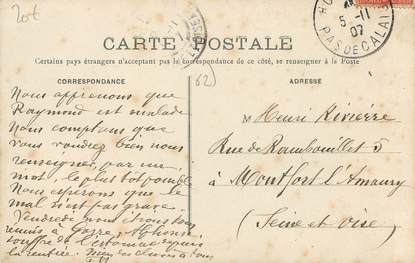 206
CARTE POSTALE
Certains pays étrangers n'acceptant pas la correspondance de ce côté, se renseigner à la Poste
CORRESPONDANCE
(62)
ADRESSE
5-11
07
PAS DE CALAIS
Nous apprenons que
Raymond est malade
Nous comptons que
vous voudrez bien nous
renseigner, par un
mot, le plus tôt possible
Nous espérons que le
mal n'est pas grave.
Vendredi nous étions tous
réunis à Alphonse
souffre de l'estomac depuis
la rentrée.
Mr Henri Rivière
Rue de Rambouillet 5
à Montfort l'Amaury
(Seine et Oise)